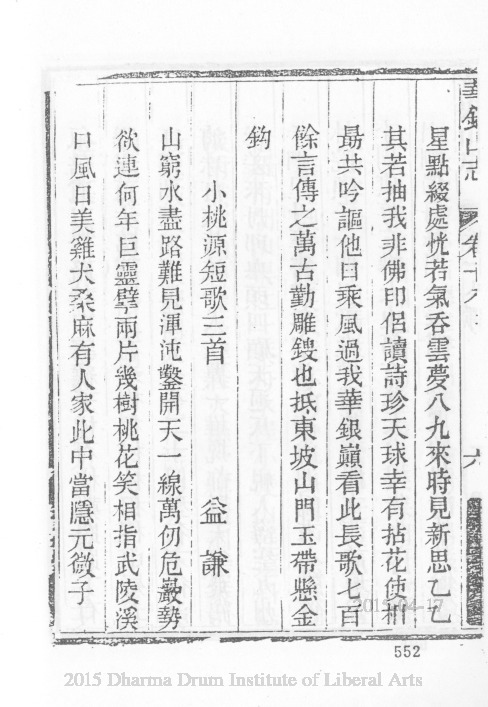 華銀山志 卷十八 六
星點綴處恍若氣吞雲夢八九來時見新思乙乙
其若抽我非佛印侶讀詩珍天球幸有拈花使相
朂共吟謳他日乘風過我華銀巔看此長歌七百
餘言傳之萬古勤雕鎪也抵東坡山門玉帶懸金
鈎
小桃源短歌三首 益謙
山窮水盡路難見渾沌鑿開天一線萬仞危巖勢
欲連何年巨靈擘兩片幾樹桃花笑相指武陵溪
口風日美雞犬桑麻有人家此中當隱元微子
552
2015-04-17
2015 Dharma Drum Institute of Liberal Arts